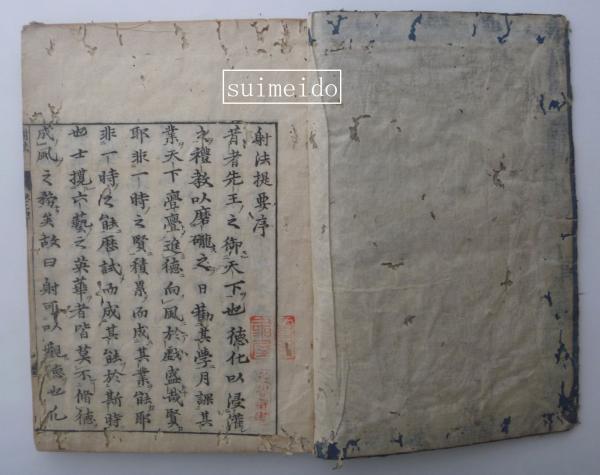 suimeido
射法提要序
昔者先王之御天下也德化以浸灌
之禮教以磨礲之日勸其學月課其
業天下亹亹進德向風於戲盛哉賢
耶非一時之賢積累而成其業能耶
非一時之能歷試而成其能於斯時
也士攬六藝之英華者皆莫不脩德
成風之務矣故曰射可以觀德也化